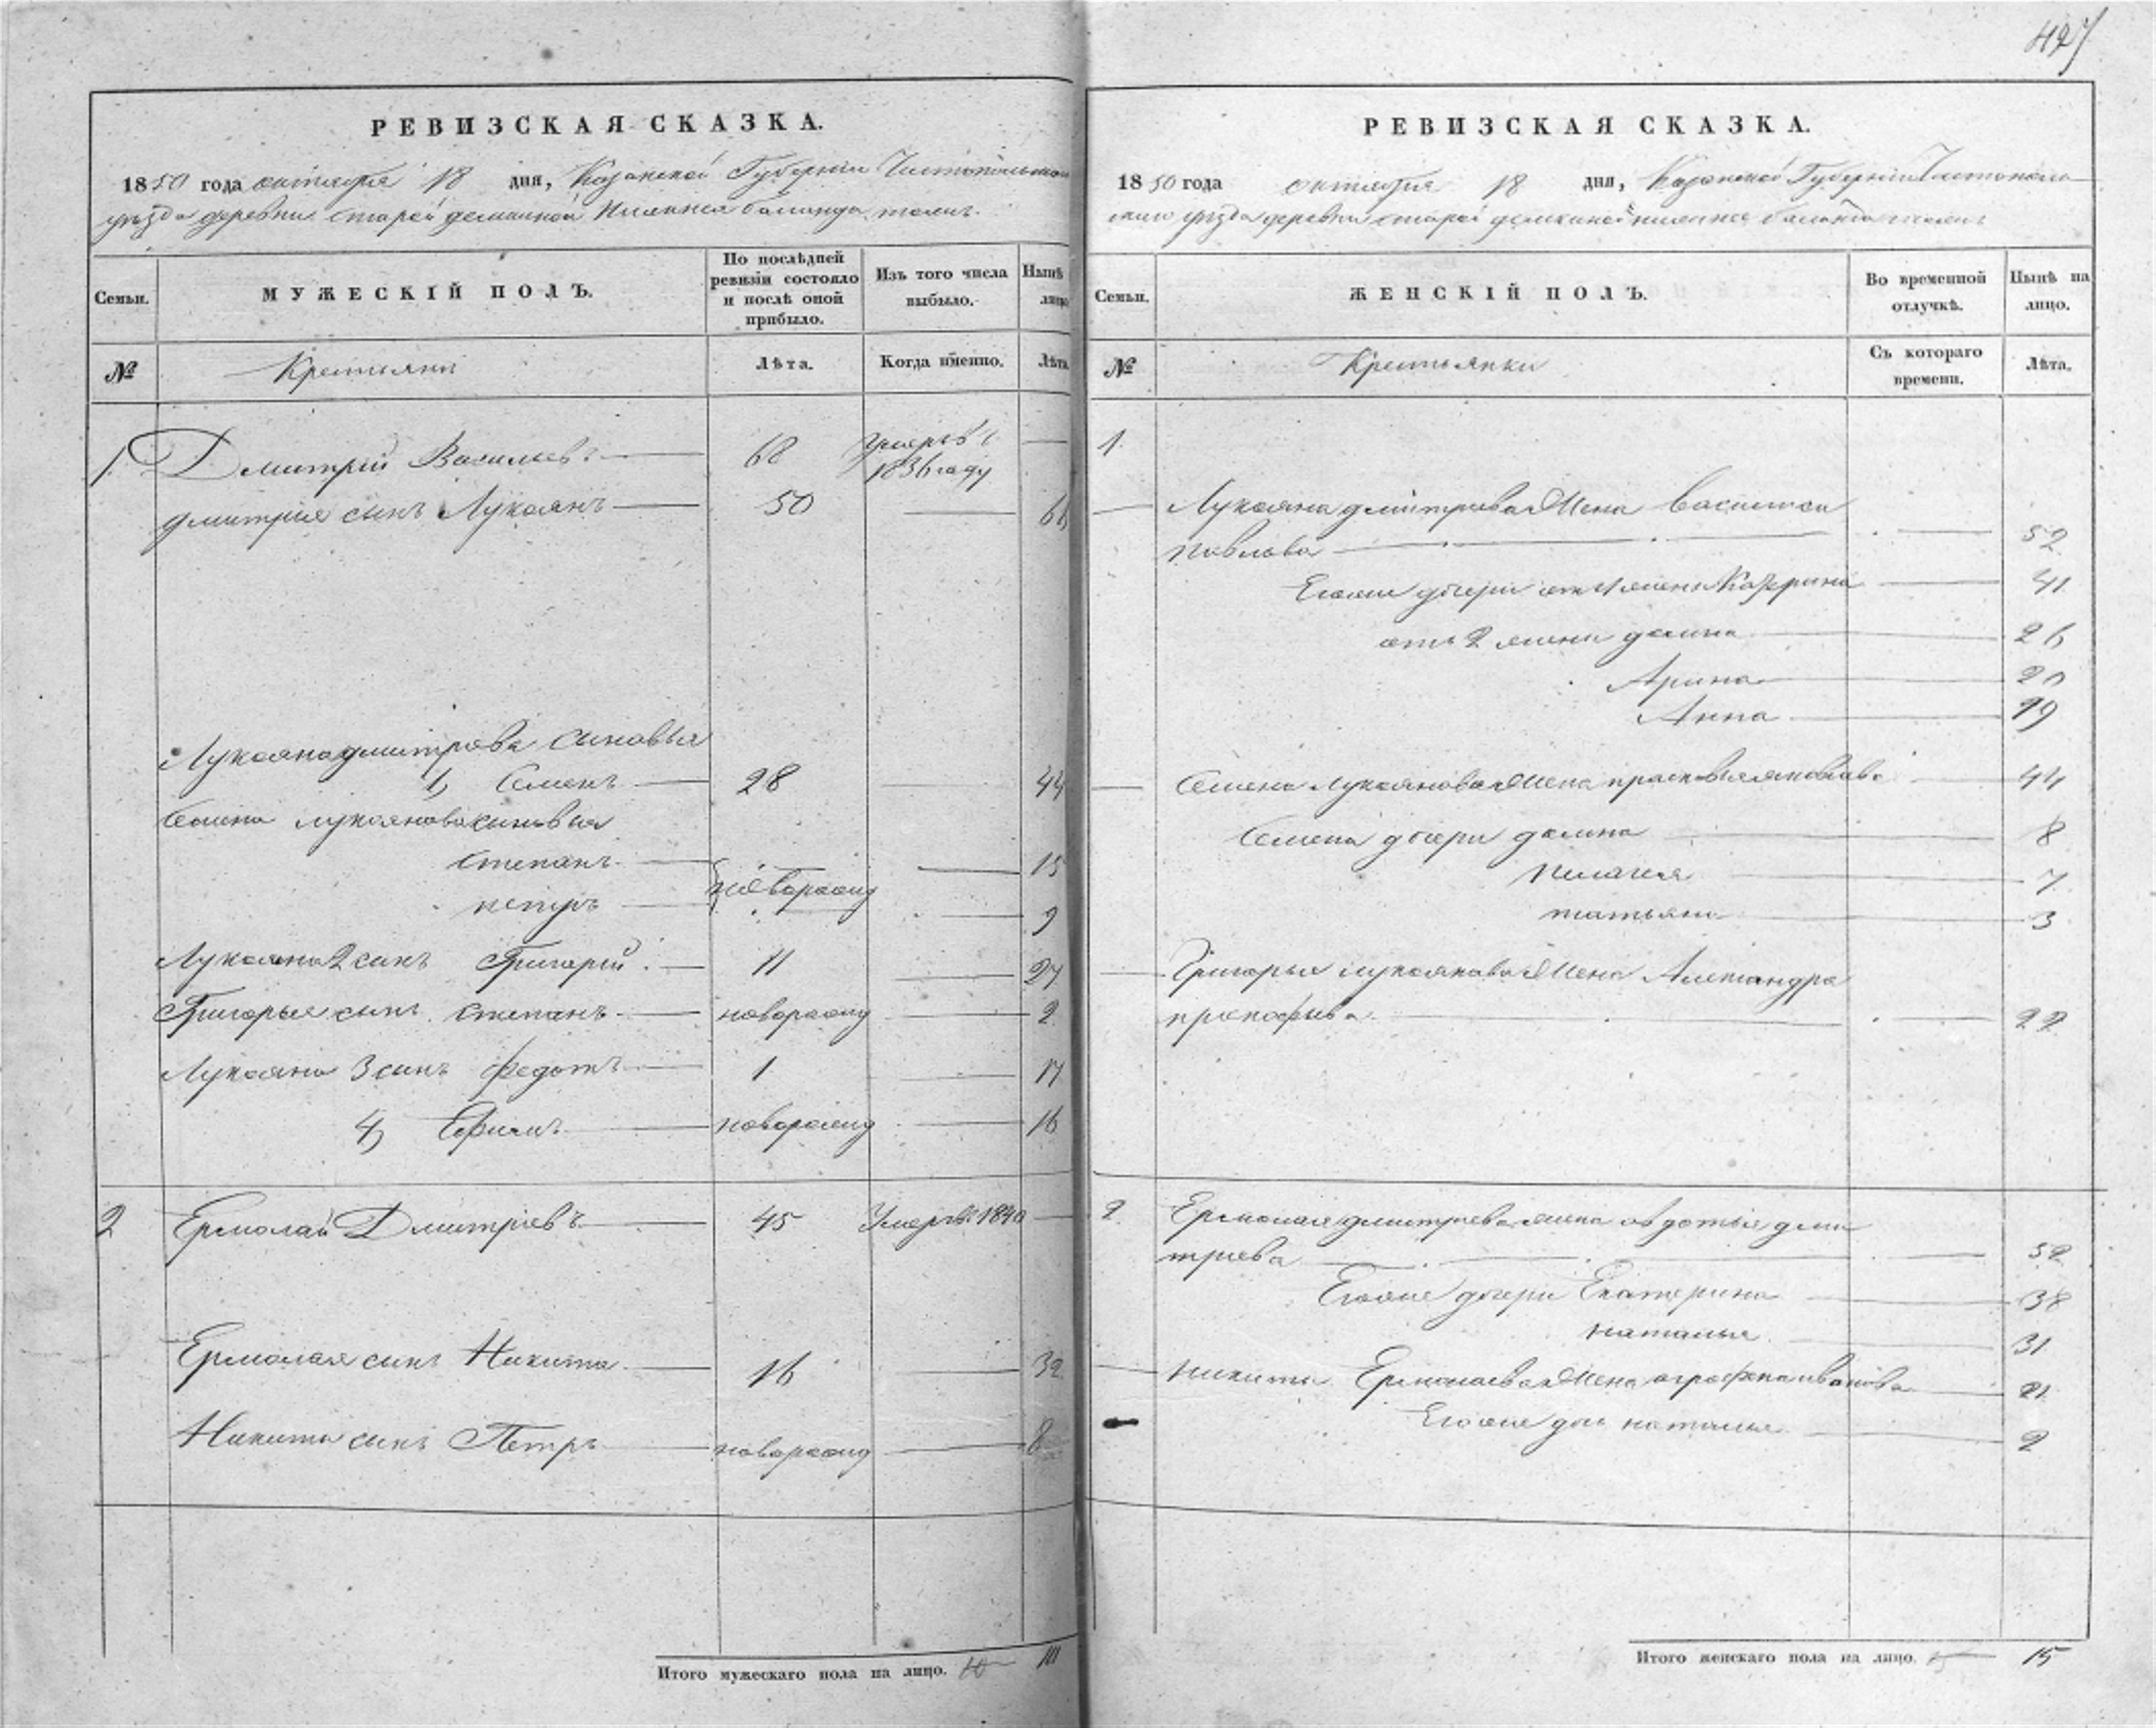 427
РЕВИЗСКАЯ СКАЗКА.
1850 года октября 18 дня, Казанской Губернии Чистопольскаго
уезда деревни старой
Семьи.
МУЖЕСКІЙ ПОЛЪ.
По послѣдней ревизіи состояло и послѣ оной прибыло.
Изъ того числа выбыло.
Нынѣ на лицо
№
Крестьяни
Лѣта.
Когда именно.
Лѣта
1. Дмитрій Васильевъ 68 Умеръ в 1836 году
Дмитрия сынъ Лукоянъ 50 66
Лукояна дмитрева сыновья
1, Семенъ 28 44
Семена лукоянова сыновья
степанъ 15
новорожд
петръ 9
Лукояна 2 сынъ Григорій 11 27
Григорья сынъ степанъ новорожд 2
Лукояна 3 сынъ федотъ 1 17
4, Ефимъ новорожд 16
2 Ермолай Дмитріевъ 45 Умеръ 1840
Ермолая сынъ Никита 16 32
Никиты сынъ Петръ новорожд 8
Итого мужескаго пола на лицо. 10
РЕВИЗСКАЯ СКАЗКА.
1850 года октября 18 дня, Казанской Губерніи Чистополь
скаго уезда деревни старой
Семьи.
ЖЕНСКІЙ ПОЛЪ.
Во временной отлучкѣ.
Нынѣ на лицо.
№
Крестьянки
Съ котораго времени.
Лѣта.
1.
Лукояна дмитрева жена Василиса
павлова 52
Егоже дочери от 1 жены Катерина 41
отъ 2 жены 26
Арина 20
Анна 19
Семена Лукоянова жена прасковья яковлева 44
Семена дочери 8
пилагея 7
татьяна 3
Григорья лукоянова жена Александра
прокофьева 22
2. Ермолая дмитрева жена овдотья дми
трева 52
Егоже дочери Екатерина 38
наталья 31
никиты Ермолаева жена аграфена иванова 21
Егоже дочь наталья 2
Итого женскаго пола на лицо. 15